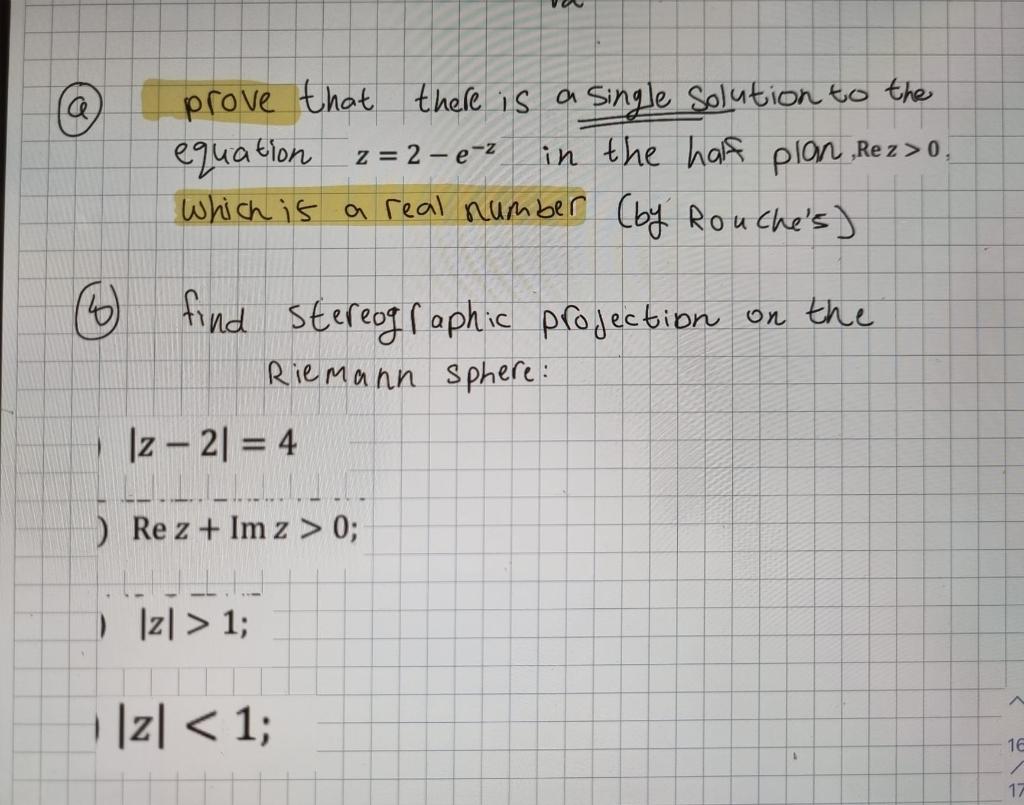 ⓐ prove that there is a single solution to the
equation z = 2 − e^−z in the half plan, Re z > 0,
which is a real number (by Rouche's)
ⓑ find stereographic projection on the
Riemann sphere:
) |z − 2| = 4
) Re z + Im z > 0;
) |z| > 1;
) |z| < 1;
16
17